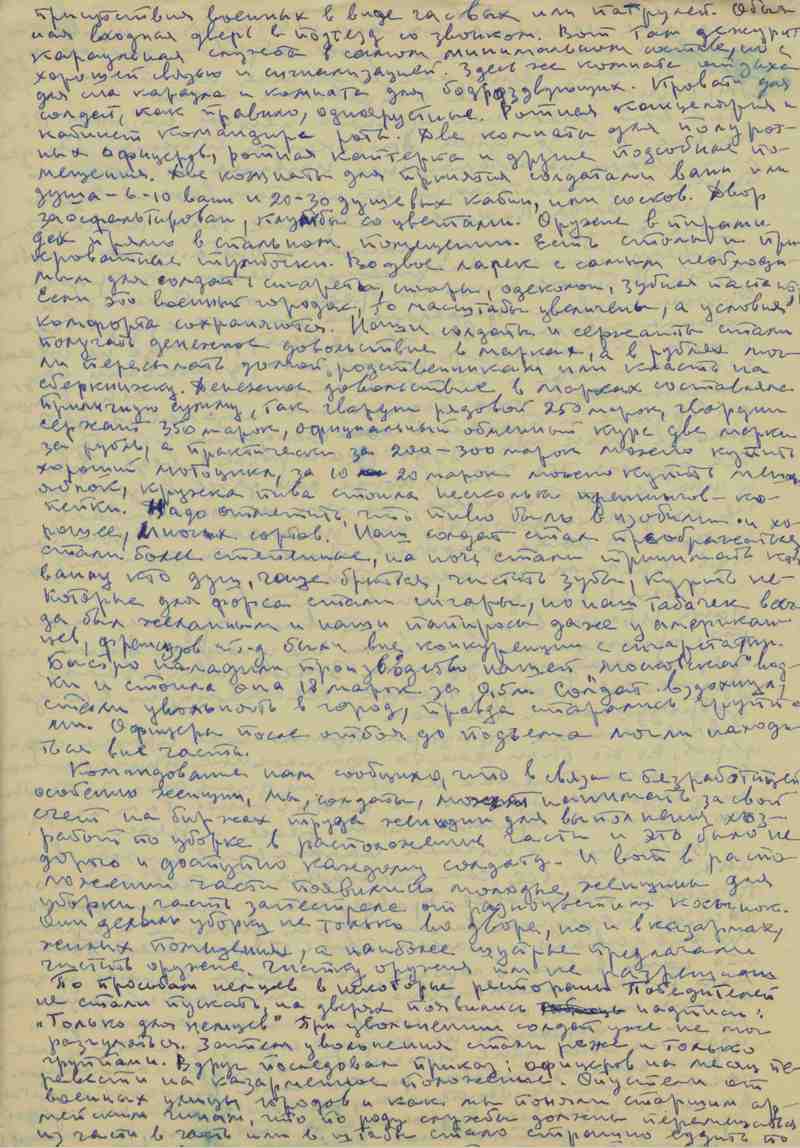 присутствия военных в виде часовых или патрулей. Обыч-
ная входная дверь в подъезд со звонком. Вот там дежурит
караульная служба в самом минимальном составе, но с
хорошей связью и сигнализацией. Здесь же комната отдыха
для сна караула и комната для бодрствующих. Кровати для
солдат, как правило, одноярусные. Ротная канцелярия и
кабинет командира роты. Две комнаты для полурот-
ных офицеров, ротная каптерка и другие подсобные по-
мещения. Две комнаты для принятия солдатами ванн или
душа - 6-10 ванн и 20-30 душевых кабин, или сосков. Двор
заасфальтирован, клумбы со цветами. Оружие в пирами-
дах прямо в спальном помещении. Есть столы и при-
кроватные тумбочки. Во дворе ларек с самым необходи-
мым для солдат: сигареты, сигары, одеколон, зубная паста
Если это военный городок, то масштабы увеличены, а условия
комфорта сохраняются. Наши солдаты и сержанты стали
получать денежное довольствие в марках, а в рублях мог-
ли пересылать домой родственникам или класть на
сберкнижку. Денежное довольствие в марках составляло
приличную сумму, так гвардии рядовой 250 марок, гвардии
сержант 350 марок, официальный обменный курс две марки
за рубль, а практически за 200-300 марок можно купить
хороший мотоцикл, за 10 - 20 марок можно купить мешок
яблок, кружка пива стоила несколько пфеннигов - ко-
пейки. Надо отметить, что пиво было в изобилии и хо-
рошее, многих сортов. Наш солдат стал преображаться
стали более степенные, на ночь стали принимать кто
ванну кто душ, чаще бриться, чистить зубы, курить не-
которые для форса стали сигары, но наш табачек всег-
да был желанным и наши папиросы даже у американ-
цев, французов и т.д. были вне конкуренции с сигаретами.
Быстро наладили производство нашей "московской" вод-
ки и стоила она 18 марок за 0,5 л. Солдат вздохнул,
стали увольнять в город, правда старались группа-
ми. Офицеры после отбоя до подъема могли находи-
ться вне части.
Командование нам сообщило, что в связи с безработицей
особенно женщин, мы, солдаты, можем нанимать за свой
счет на биржах труда женщин для выполнения хоз-
работ по уборке в расположении части и это было не
дорого и доступно каждому солдату. И вот в распо-
ложении части появились молодые женщины для
уборки, часть запестрела от разноцветных косынок.
Они делали уборку не только во дворе, но и в казармах,
жилых помещениях, а наиболее шустрые предлагали
чистить оружие. Чистку оружия им не разрешали
По просьбам немцев в некоторые рестораны Победителей
не стали пускать, на дверях появились надписи:
"Только для немцев" При увольнении солдат уже не мог
разгуляться. Затем увольнения стали реже и только
группами. Вдруг последовал приказ: офицеров на месяц пе-
ревести на казарменное положение. Опустели от
военных улицы городов и как мы поняли старшим ар-
мейским чинам, что по роду службы должны перемещаться
из части в часть или в штабы стало страшно ездить по